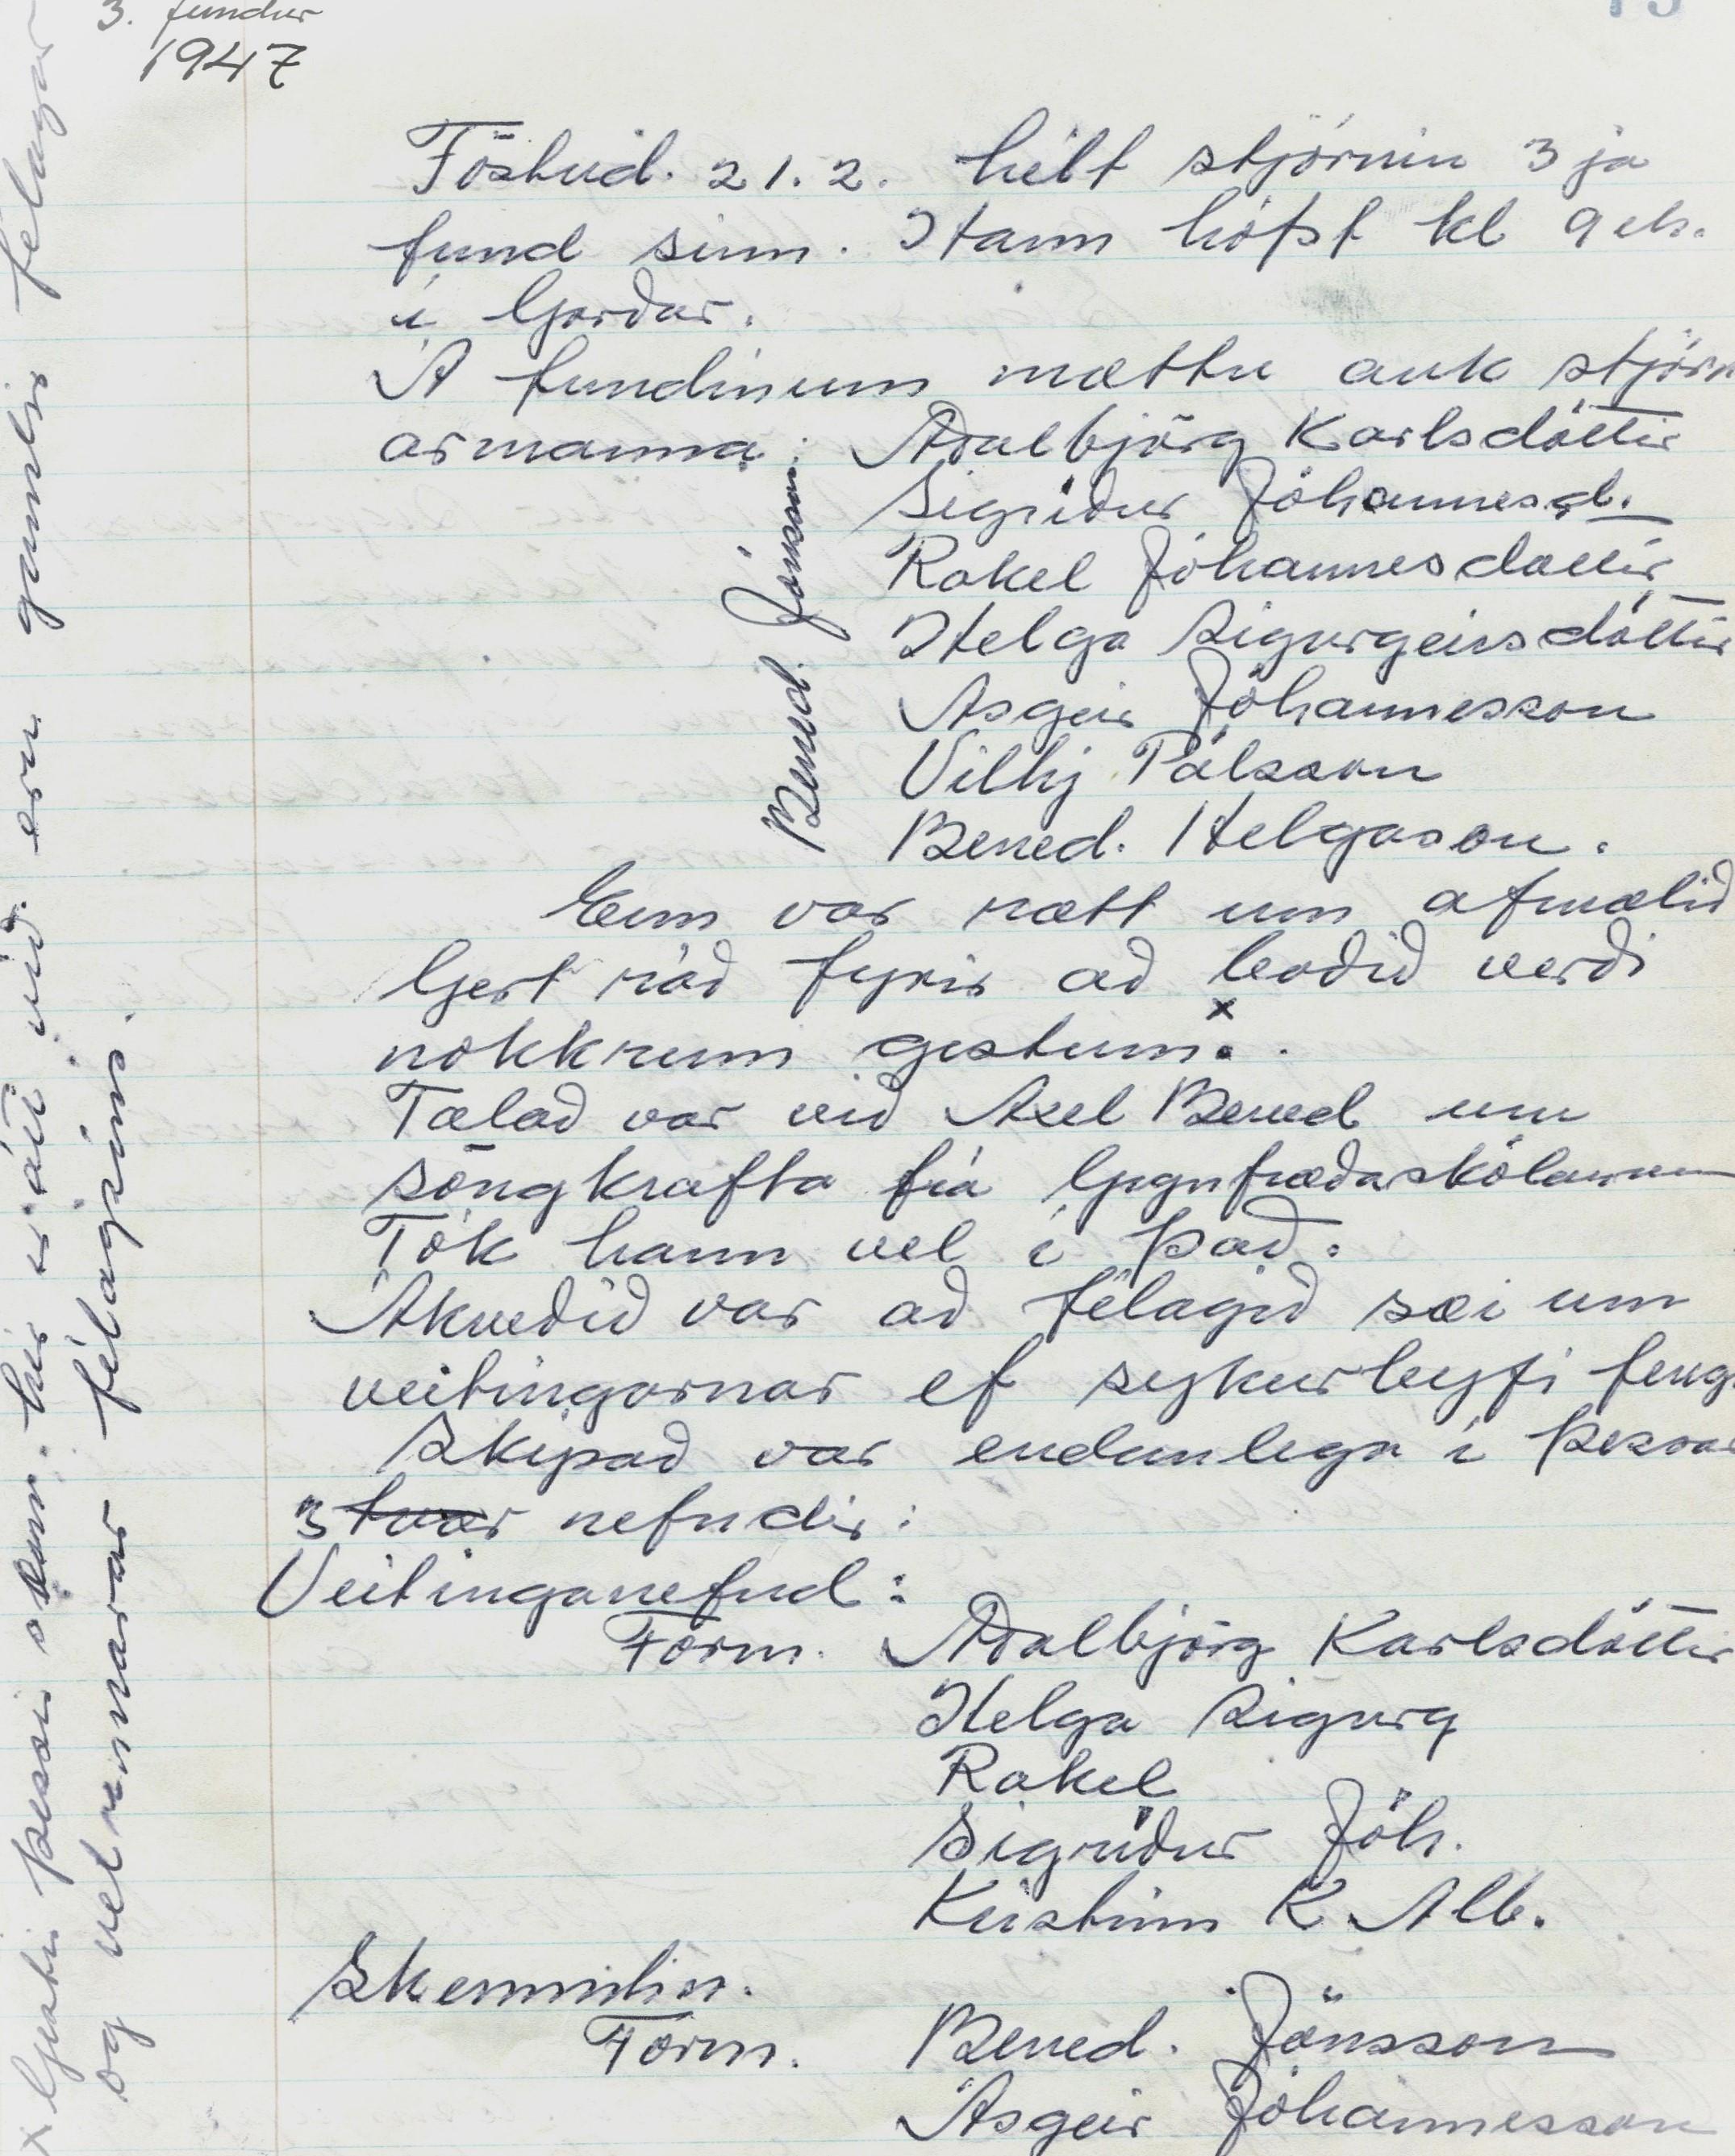 3. fundur
1947
Föstud. 21.2. hélt stjórnin 3ja
fund sinn. Hann hófst kl 9 eh.
í Garðar.
Á fundinum mættu auk stjórn
armanna: Aðalbjörg Karlsdóttir
Sigríður Jóhannesd.
Rakel Jóhannesdóttir
Helga Sigurgeirsdóttir
Ásgeir Jóhannesson
Vilhj Pálsson
Bened. Helgason.
Bened. Jónsson.
Enn var rætt um afmælið
Gert ráð fyrir að boðið verði
nokkrum gestum. x
Talað var við Axel Bened um
söngkrafta frá Gagnfræðaskólanum
Tók hann vel í það.
Ákveðið var að félagið sæi um
veitingarnar ef sykurleyfi feng
Skipað var endanlega í þessar
3 tvær nefndir:
Veitinganefnd:
Form. Aðalbjörg Karlsdóttir
Helga Sigurg
Rakel
Sigríður Jóh.
Kristinn K Alb.
Skemmtin.
Form. Bened. Jónsson
Ásgeir Jóhannesson
x Gestir þessi sem hér er átt við eru gamlir félagar
og velunnarar félagsins.